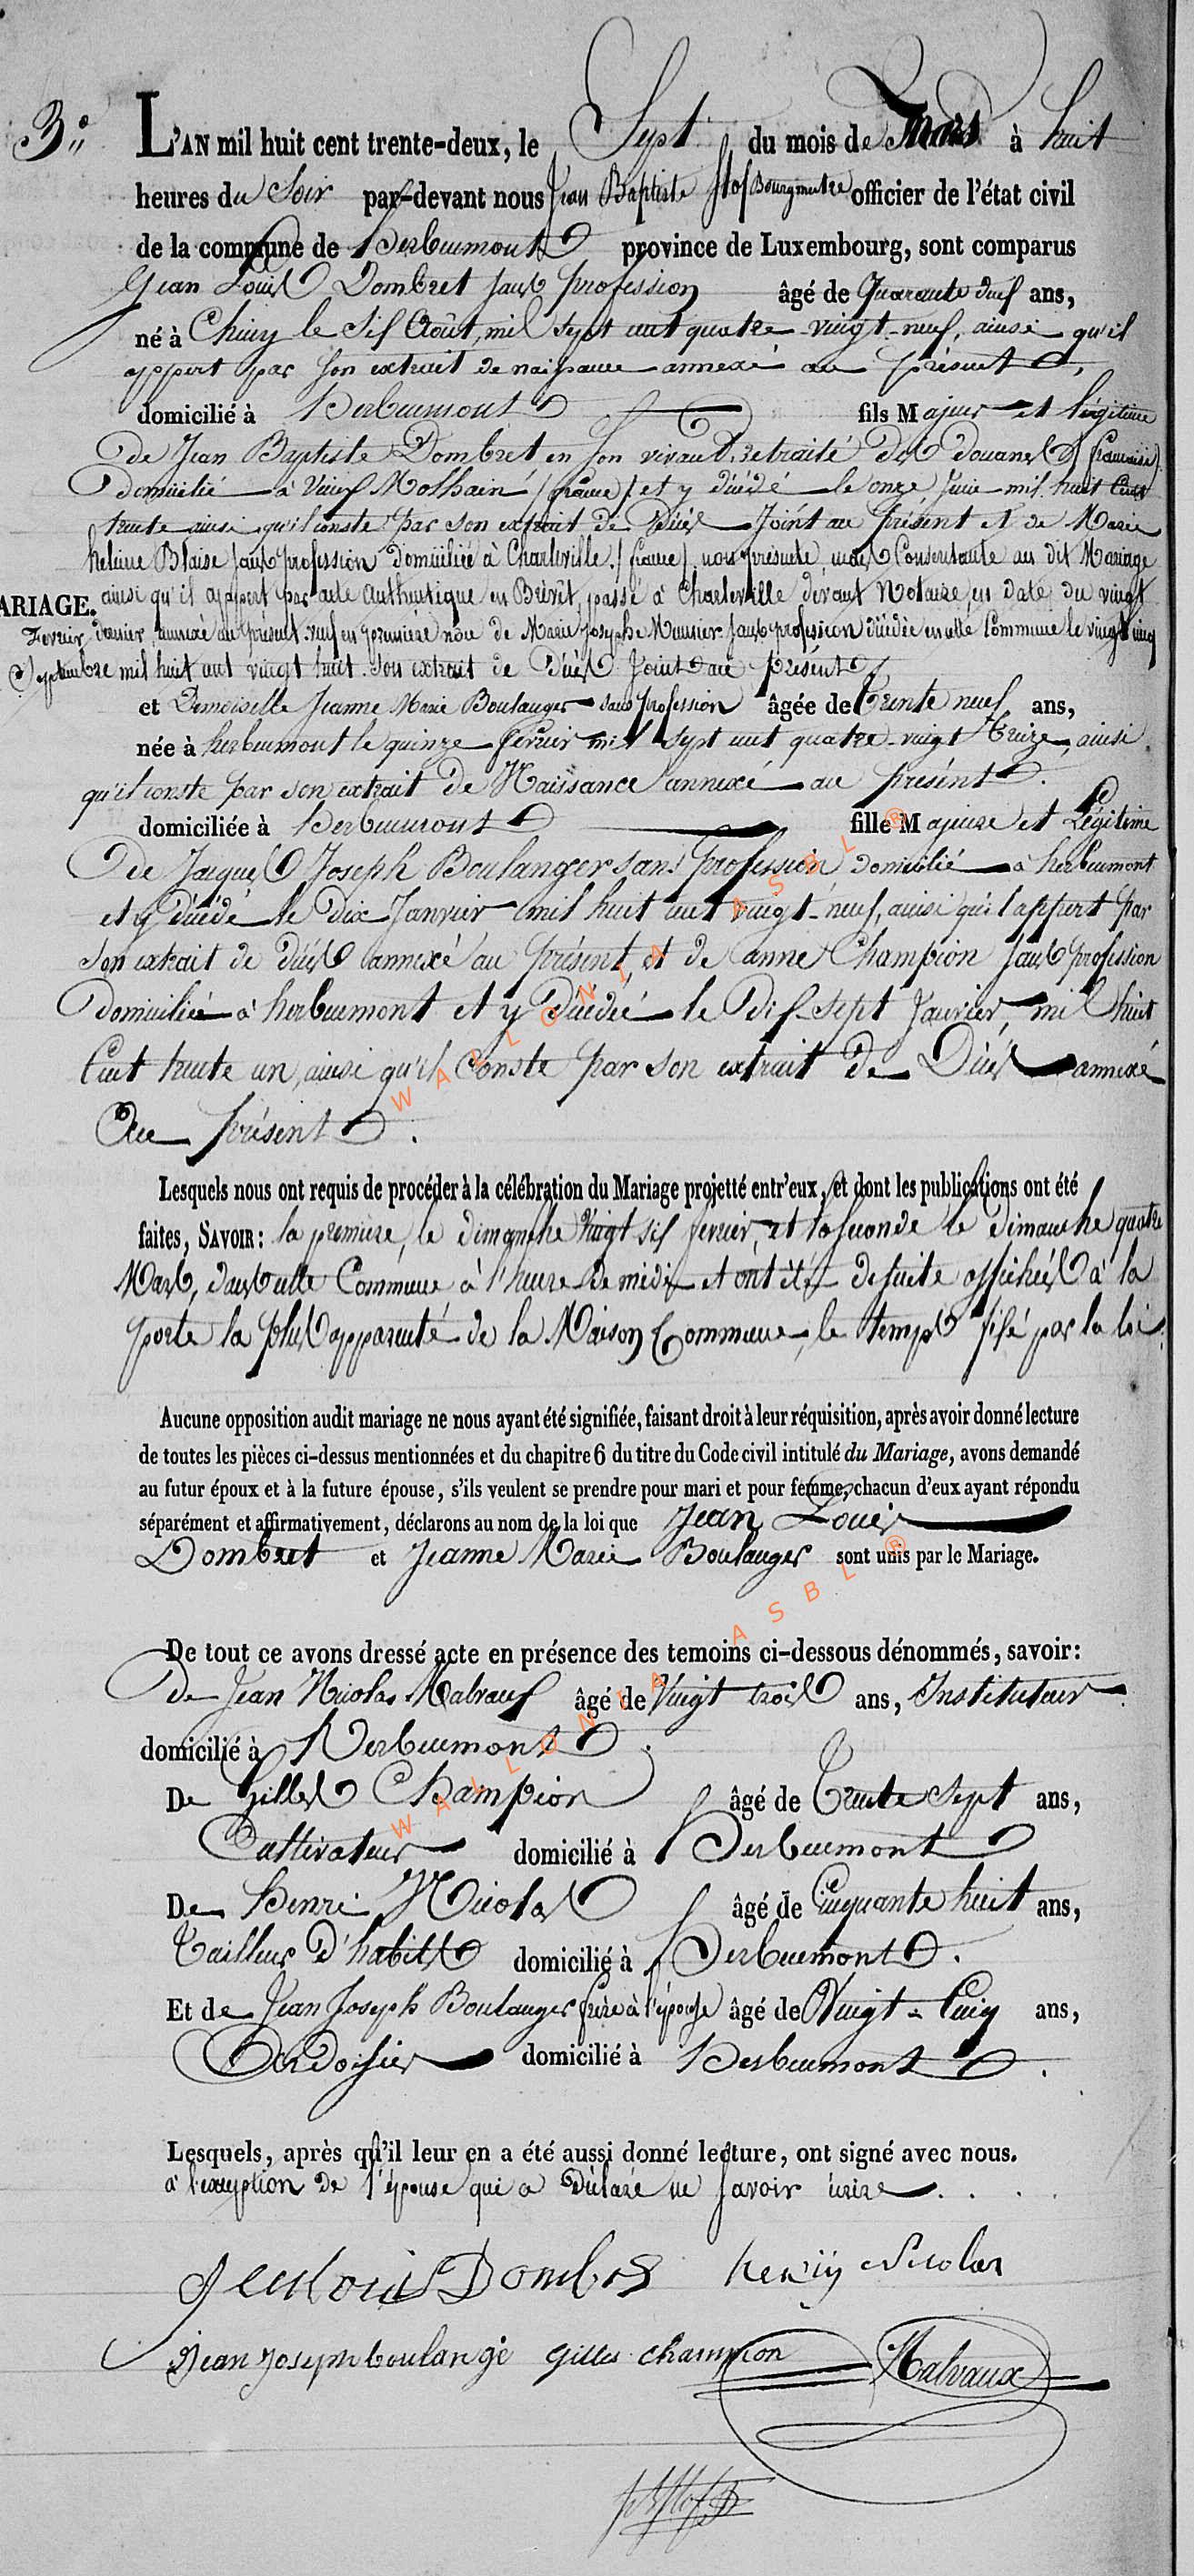 3e L'AN mil huit cent trente-deux, le Sept du mois de Mars à huit
heures du Soir par-devant nous Jean Baptiste Bourgmestre officier de l'état civil
de la commune de Herbeumont province de Luxembourg, sont comparus
Jean Louis Dombret sans profession âgé de Quarante deux ans,
né à Chiny le six Août, mil sept cent quatre-vingt-neuf, ainsi qu'il
appert par son extrait de naissance annexé au présent,
domicilié à Herbeumont fils Majeur et légitime
de Jean Baptiste Dombret en son vivant, retraité des douanes françaises
domicilié à Vieux Molhain (france) et y décédé le onze Juin mil huit Cent
trente ainsi qu'il conste par son extrait de Décès Joint au présent et de Marie
helaine Blaise sans profession domiciliée à Charleville (france) non présente, mais Consentante au dit Mariage
ARIAGE. ainsi qu'il appert par acte authentique en Brévèt, passé à Charleville devant Notaire, en date du vingt
Fevrier dernier annexé au présent. veuf en première nôce de Marie Josephe Meunier sans profession décédée en cette Commune le vingt cinq
Septembre mil huit cent vingt huit. son extrait de Décès Joint au présent
et Demoiselle Jeanne Marie Boulanger sans profession âgée de Trente neuf ans,
née à herbeumont le quinze février mil sept cent quatre-vingt Treize, ainsi
qu'il conste par son extrait de Naissance annexé au présent.
domiciliée à Herbeumont fille Majeure et Légitime
de Jacques Joseph Boulanger sans profession domicilié à herbeumont
et y décédé le Dix Janvier mil huit cent vingt-neuf, ainsi qu'il appert par
son extrait de décès annexé au présent, et de anne Champion sans profession
Domiciliée à herbeumont et y Décédée le Dix-sept Janvier, mil huit
Cent trente un, ainsi qu'il Conste par son extrait de Décès annexé
Au présent.
Lesquels nous ont requis de procéder à la célébration du Mariage projetté entr'eux, et dont les publications ont été
faites, SAVOIR: la première, le dimanche Vingt six fevrier, et la seconde le Dimanche quatre
Mars, dans cette Commune à l'heure de midi et ont été de suite affichées à la
porte la plus apparente de la Maison Commune, le temps fixé par la loi.
Aucune opposition audit mariage ne nous ayant été signifiée, faisant droit à leur réquisition, après avoir donné lecture
de toutes les pièces ci-dessus mentionnées et du chapitre 6 du titre du Code civil intitulé du Mariage, avons demandé
au futur époux et à la future épouse, s'ils veulent se prendre pour mari et pour femme, chacun d'eux ayant répondu
séparément et affirmativement, déclarons au nom de la loi que Jean Louis
Dombret et Jeanne Marie Boulanger sont unis par le Mariage.
De tout ce avons dressé acte en présence des temoins ci-dessous dénommés, savoir:
de Jean Nicolas Malvaux âgé de Vingt trois ans, Instituteur
domicilié à Herbeumont.
De Gilles Champion âgé de Trente Sept ans,
Cultivateur domicilié à Herbeumont
De Henri Nicolas âgé de Cinquante huit ans,
Tailleur d'habits domicilié à Herbeumont.
Et de Jean Joseph Boulanger frère à l'épouse âgé de Vingt-Cinq ans,
Ardoisier domicilié à Herbeumont.
Lesquels, après qu'il leur en a été aussi donné lecture, ont signé avec nous.
à l'exception de l'épouse qui a Déclaré ne savoir écrire....
Jean Louis Dombret henrÿ Nicolas
Jean Joseph boulangé Gilles Champion Malvaux
WALLONIA ASBL ®
WALLONIA ASBL ®